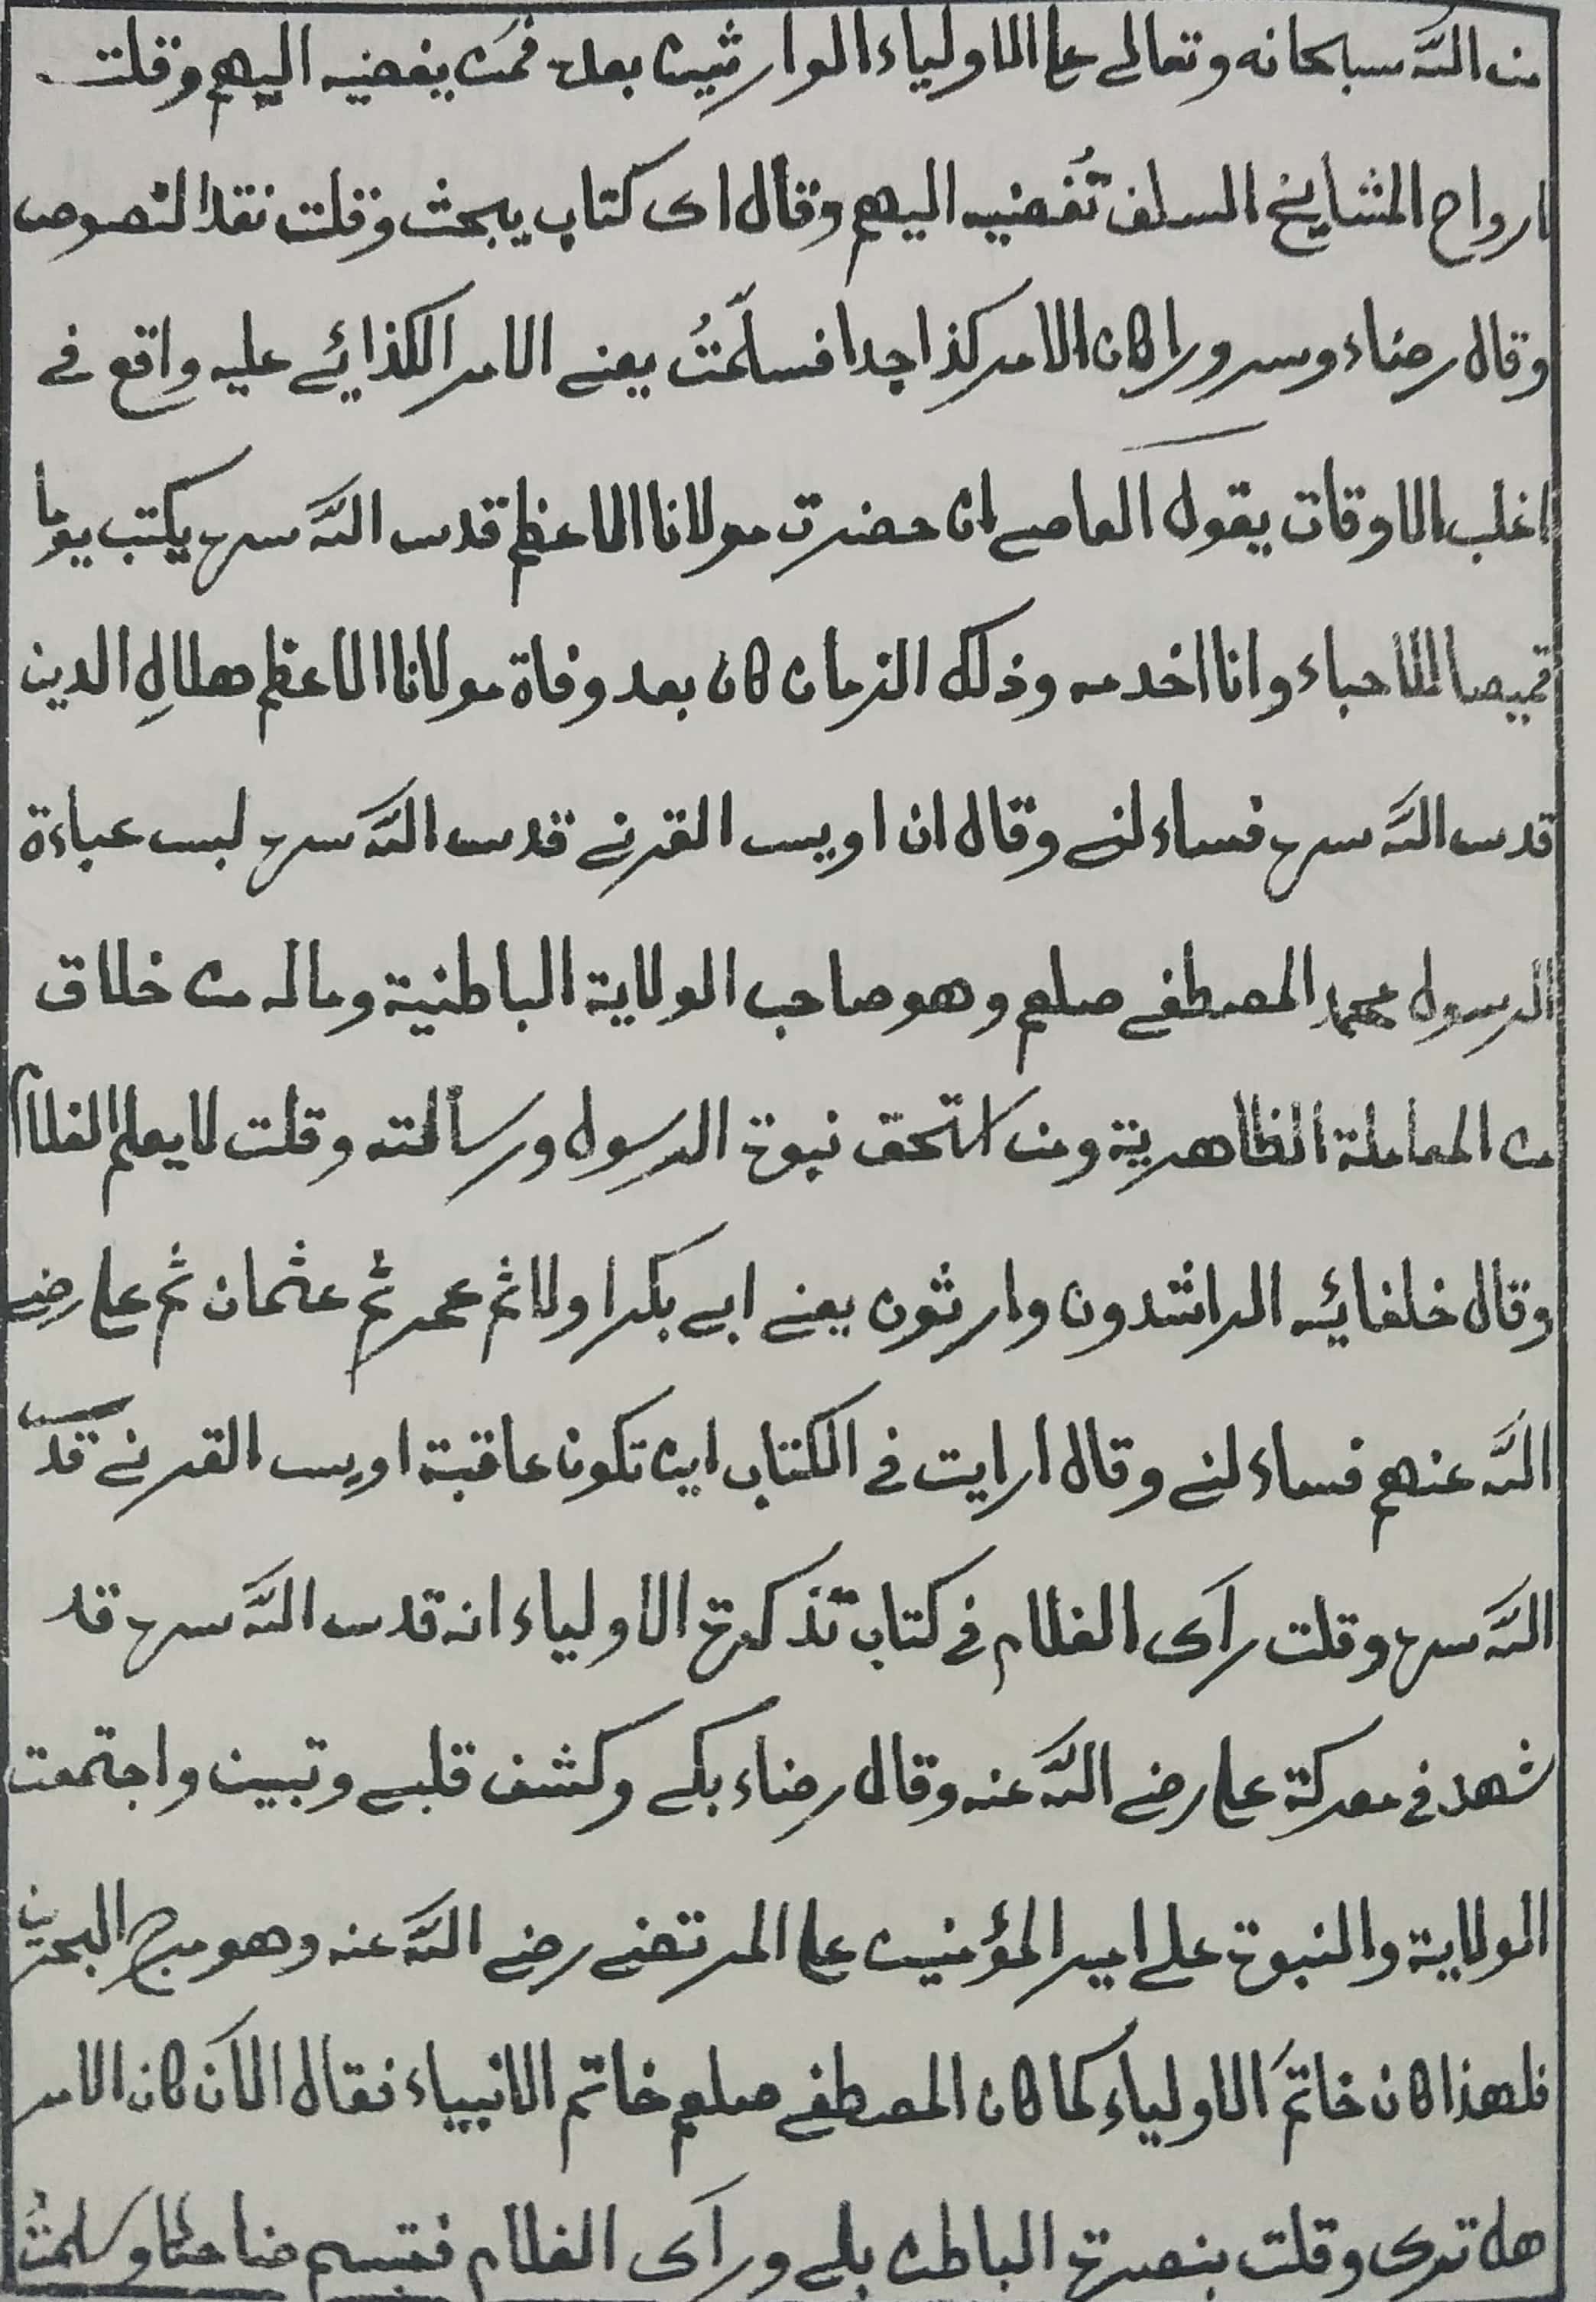 من اللّٰه سبحانه وتعالى على الاولياء الوارثين بعده فمن يفضيه اليهم وقلت
ارواح المشايخ السلف تُفضيه اليهم وقال اى كتاب يبحث وقلت نقد النصوص
وقال رضاء وسرورا كان الامر كذا جدا فسلّمتُ يعنى الامر الكذائى عليه واقع فى
اغلب الاوقات يقول العاصى ان حضرت مولانا الاعظم قدس اللّٰه سره يكتب يوما
قميصا للاحباء وانا اخدمه وذلك الزمان كان بعد وفاة مولانا الاعظم هلالِ الدين
قدس اللّٰه سره فساءلنى وقال ان اويس القرنى قدس اللّٰه سره لبس عباءة
الرسول محمد المصطفى صلعم وهو صاحب الولاية الباطنية وماله من خلاق
من المعاملة الظاهرية ومن استحق نبوة الرسول ورسالته وقلت لا يعلم الغلام
وقال خلفائه الراشدون وارثون يعنى ابى بكر اولا ثم عمر ثم عثمان ثم على رضى
اللّٰه عنهم فساءلنى وقال ارايت فى الكتاب اين تكون عاقبة اويس القرنى قدس
اللّٰه سره وقلت رآى الغلام فى كتاب تذكرة الاولياء انه قدس اللّٰه سره قد
شهد فى معركة على رضى اللّٰه عنه وقال رضاء بكى وكشف قلبى وتبين واجتمعت
الولاية والنبوة على امير المؤمنين على المرتضى رضى اللّٰه عنه وهو مرج البحرين
فلهذا كان خاتمَ الاولياء كما كان المصطفى صلعم خاتم الانبياء فقال الآن كان الامر
هل ترى وقلت بنصرة الباطن بلى ورآى الغلام فتبسم ضاحكا وسلمتُ